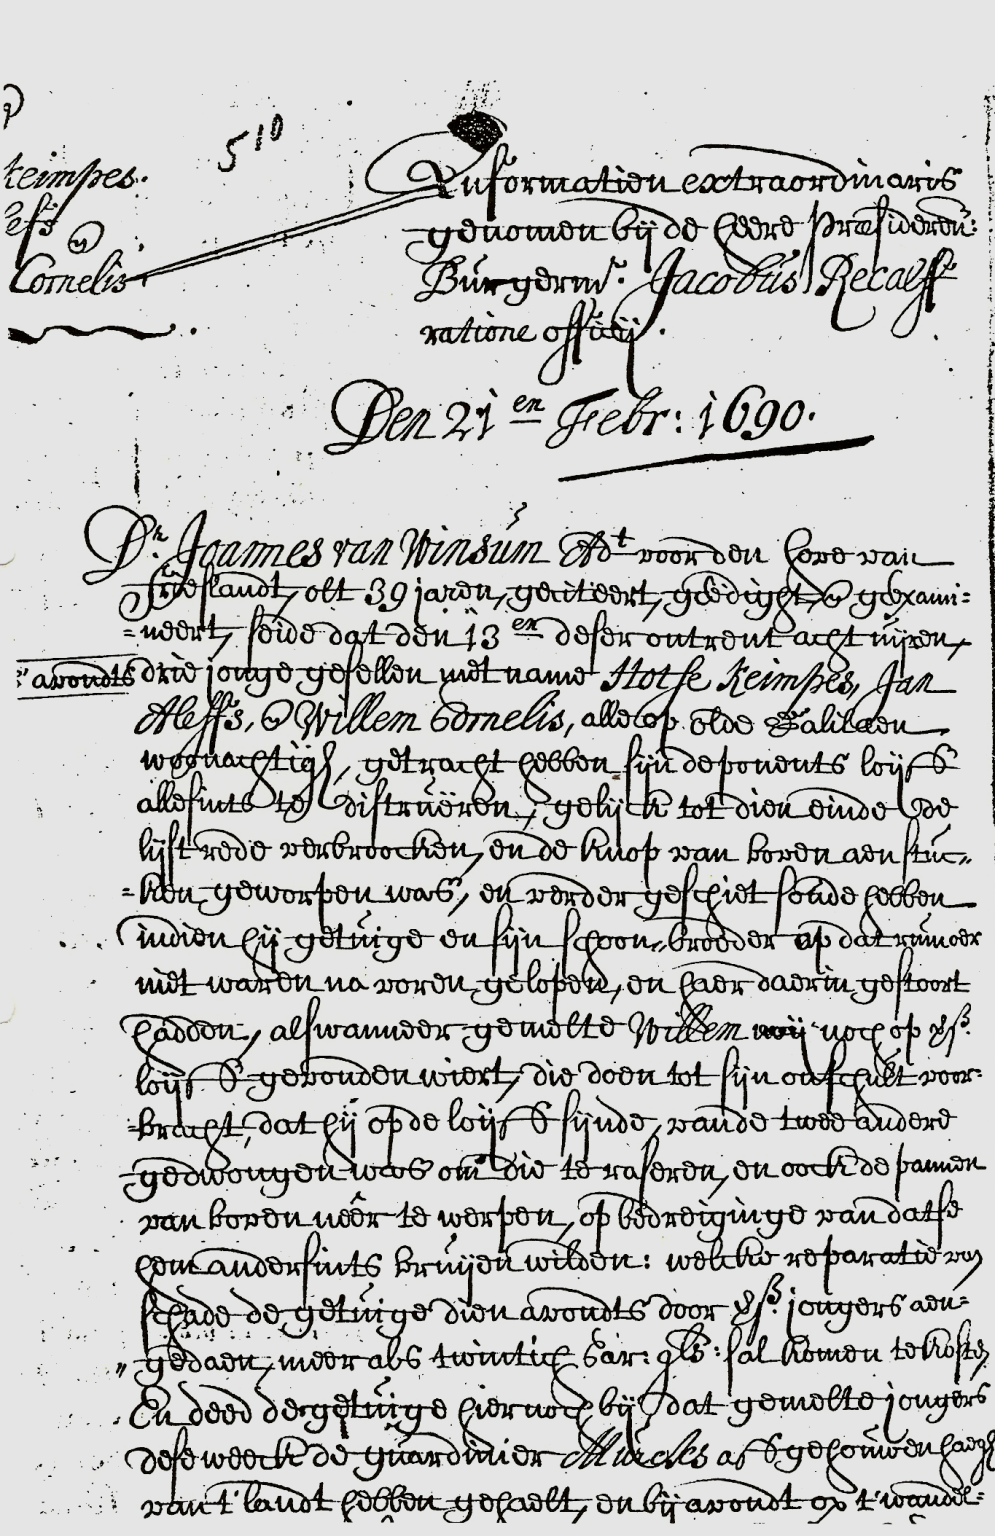 510
keimpes.
Cornelis
Informatien extraordinaris
genomen bij de Heere Præsideren:
Burgermr. Jacobus Recalff
ratione officij.
Den 21en Febr: 1690.
Dr. Joannes van Winsum Adt voor den Hove van
Frieslandt, olt 39 jaren, geciteert, geëdight, & geexami=
=neert, seide dat den 13en deser ontrent acht uijren,
avondts drie jonge gesellen met name Hotse Keimpes, Jan
Aleffs, & Willem Cornelis, alle op Olde Galileen
woonachtigh, getracht hebben sijn deponents loijffe
allesints te distrueren, gelijck tot dien einde de
lijst rede verbroocken, en de knop van boven aen stuc=
=ken geworpen was, en verder geschiet soude hebben
indien hij getuige en sijn schoon=broeder op dat rumoer
niet waren na voren gelopen, en haer daerin gestoort
hadden, alswanneer gemelte Willem noch op
loijffe gevonden wiert, die doen tot sijn onschult voor=
=bracht, dat hij op de loijffe sijnde, van de twee andere
gedwongen was om die te raseren, en oock de pannen
van boven neêr te werpen, op bedreiginge van datse
hem andersints bruijen wilden: welcke reparatie van
schade de getuige dien avondts door jongers aen=
gedaen, meer als twintich Car: gls: sal komen te kosten
En deed de getuige hier noch bij dat gemelte jongers
dese weeck de guardinier Murcks af gehouwen haegh
van 't landt hebben gehaelt, en bij avondt op 't wandel=